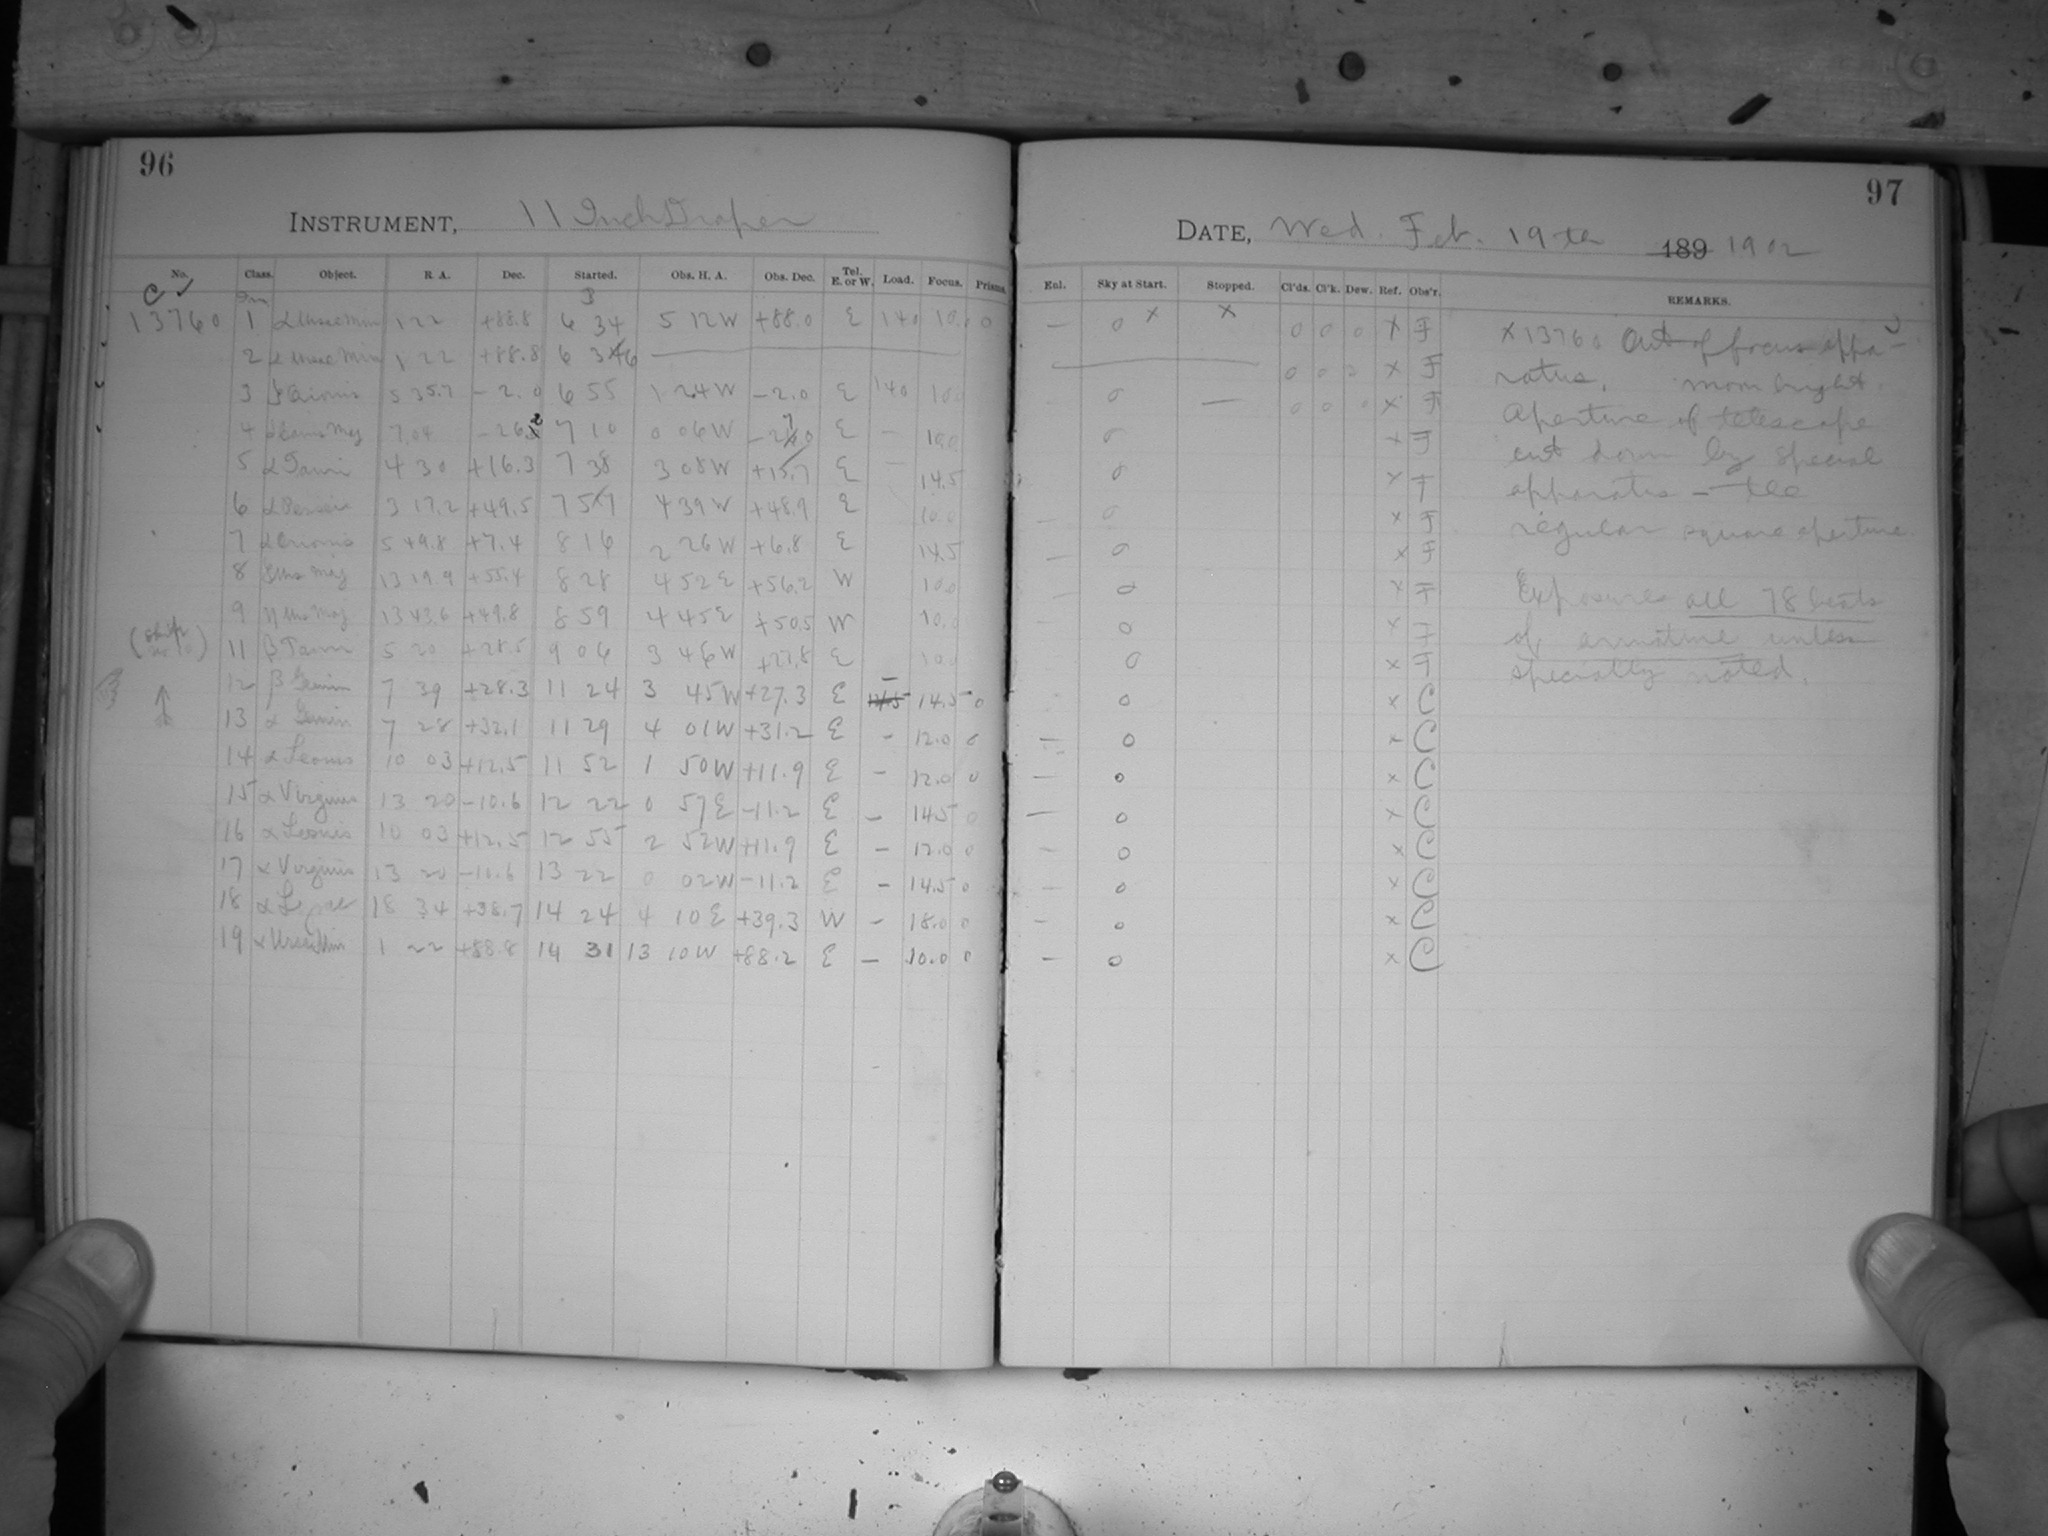 96
INSTRUMENT, 11 Inch Draper
No. Class. Object. R A. Dec. Started. Obs. H. A. Obs. Dec. Tel. E. or W. Load. Focus. Prisms.
C ✓
13760 1 α Ursae Min 1 22 +88.8 6 34 5 12 W +88.0 E 140 10.0 0
2 α Ursae Min 1 22 +88.8 6 36
3 Orionis 5 35.7 -2.0 6 55 1 24 W -2.0 E 140 10.0
4 α Canis Maj 7.04 7 10 0 06 W E - 10.0
5 α Tauri 4 30 +16.3 7 38 3 08 W +15.7 E - 14.5
6 α Persei 3 17.2 +49.5 7 57 4 39 W +48.9 E 10.0
7 α Orionis 5 49.8 +7.4 8 16 2 26 W +6.8 E 14.5
8 ζ Urs Maj 13 19.9 +55.4 8 28 4 52 E +56.2 W 10.0
9 η Urs Maj 13 43.6 +49.8 8 59 4 45 E +50.5 W 10.0
(skip no 10) 11 β Tauri 5 20 +28.5 9 06 3 46 W +27.8 E 10.0
12 β Gemin 7 39 +28.3 11 24 3 45 W +27.3 E - 14.5 0
13 α Gemin 7 28 +32.1 11 29 4 01 W +31.2 E - 12.0 0
14 α Leonis 10 03 +12.5 11 52 1 50 W +11.9 E - 12.0 0
15 α Virginis 13 20 -10.6 12 22 0 57 E -11.2 E - 14.5 0
16 α Leonis 10 03 +12.5 12 55 2 52 W +11.9 E - 12.0 0
17 α Virginis 13 20 13 22 0 02 W -11.2 E - 14.5 0
18 α Lyrae 18 34 +38.7 14 24 4 10 E +39.3 W - 18.0 0
19 α Ursae Min 1 22 +88.8 14 31 13 10 W +88.2 E - 10.0 0
97
DATE, Wed. Feb. 19th 189 1902
Enl. Sky at Start. Stopped. Cl'ds. Cl'k. Dew. Ref. Obs'r. REMARKS.
- 0 x x 0 0 0 x F
0 0 0 x F
0 - 0 0 0 x F
0 x F
0 x F
- 0 x F
- 0 x F
- 0 x F
- 0 x F
0 x F
0 x C
- 0 x C
- 0 x C
- 0 x C
- 0 x C
- 0 x C
- 0 x C
- 0 x C
x 13760 Out of focus appa-
ratus. moon bright.
Aperture of telescope
cut down by special
apparatus - the
regular square aperture.
Exposures all 78 beats
of armature unless
specially noted.